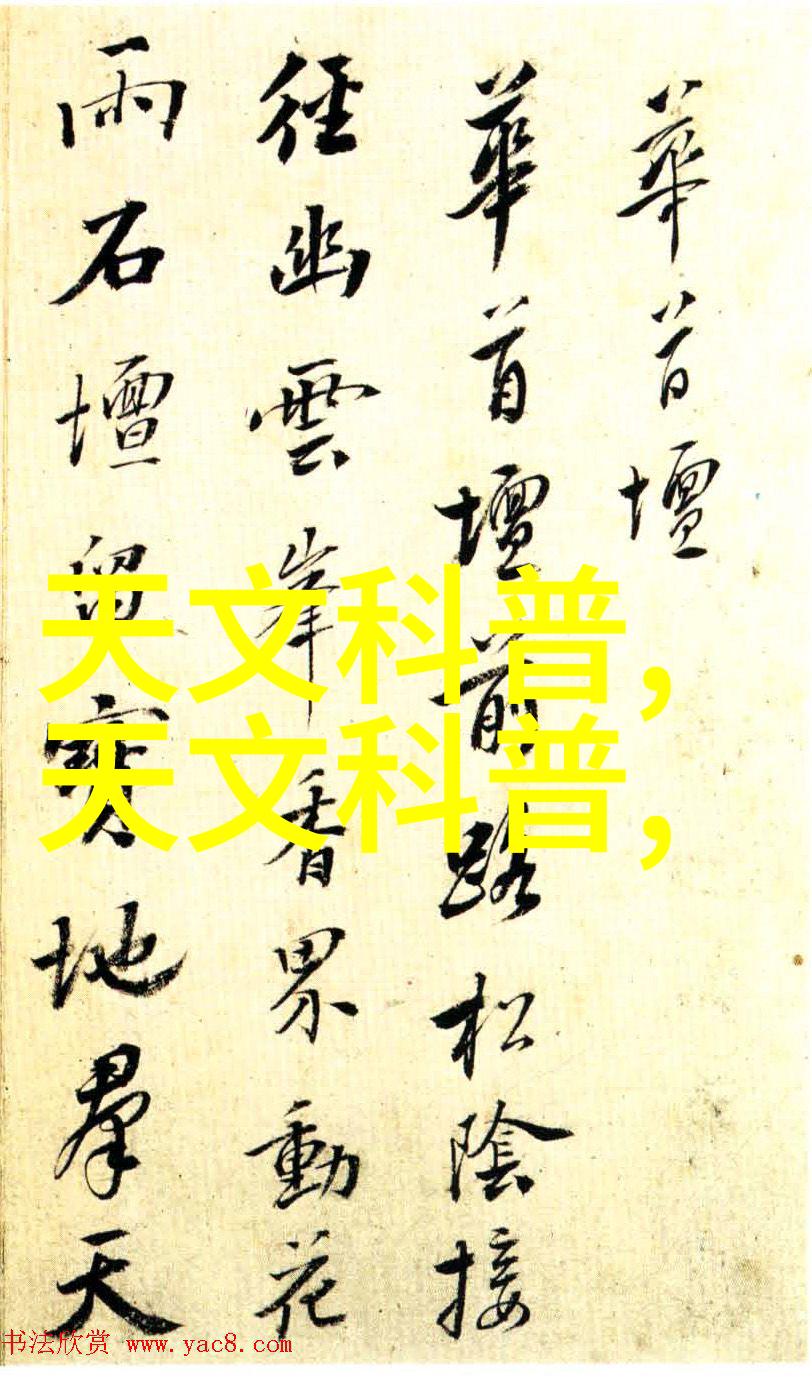 華首壇
華首壇前路松陰接
徑幽雲峯香界動花
雨石壇留寶地羣天
天文科普,
天文科普,
书法欣赏 www.yac8.com